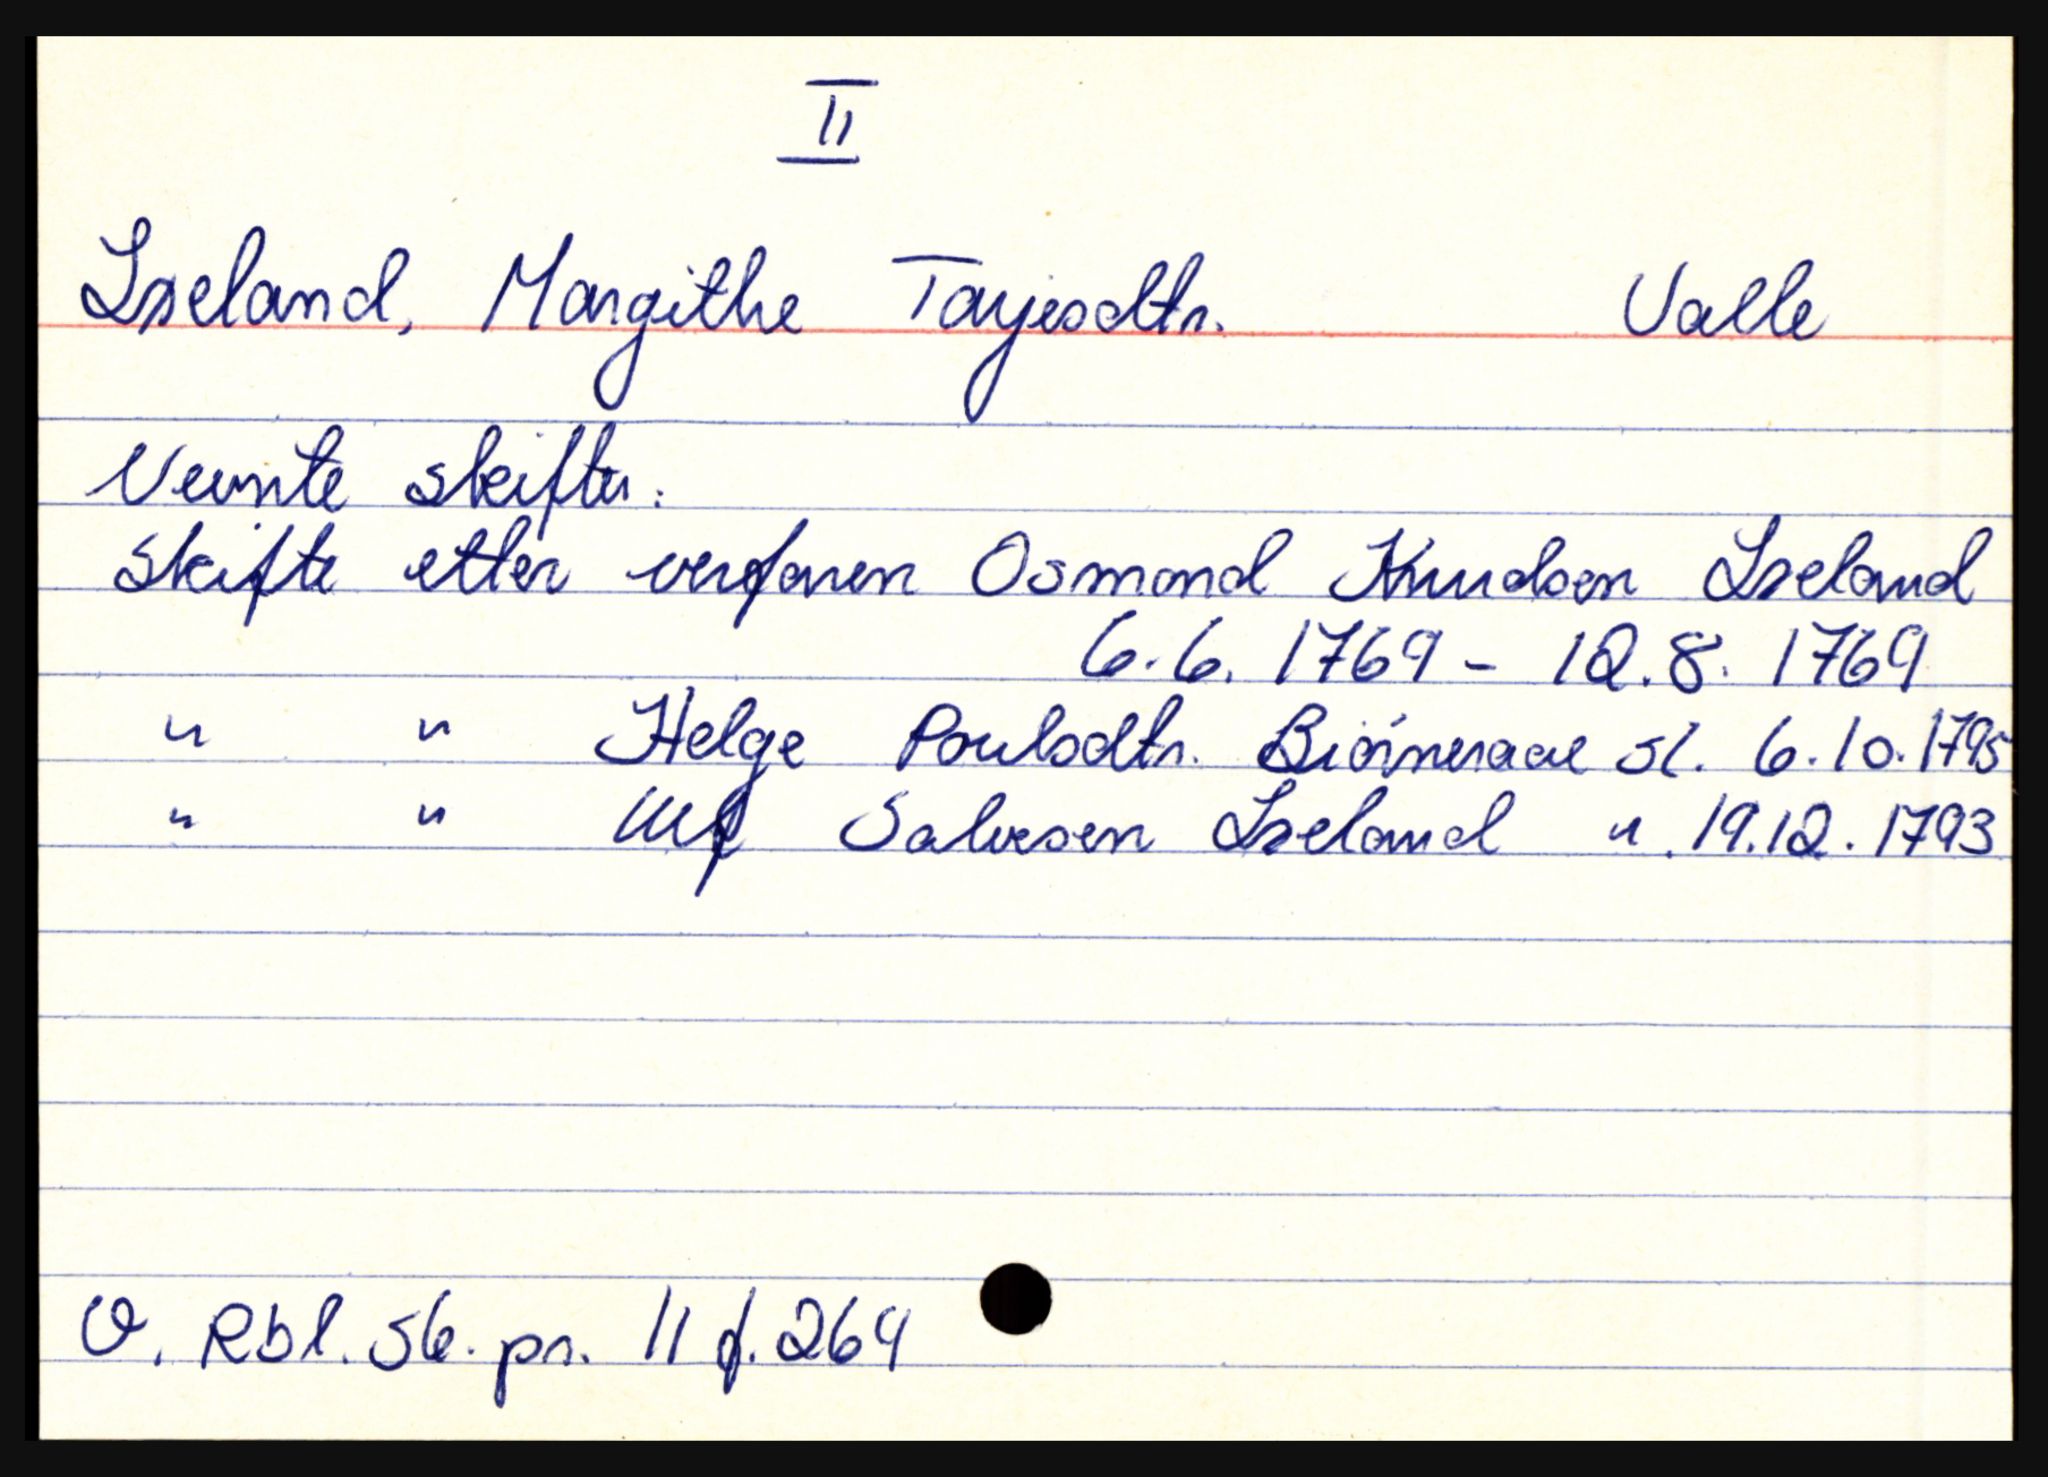 II
Iseland, Margithe Tarjesdtr. Valle
Nevnte skifter:
Skifte etter verfaren Osmond Knudsen Iseland
6.6. 1769 - 12.8. 1769
" " Helge Poulsdtr. Biørneraae sl. 6.10.1795
" " Ulf Salvesen Iseland " . 19.12.1793
O. Rbl. sk. pr. 11 f. 264